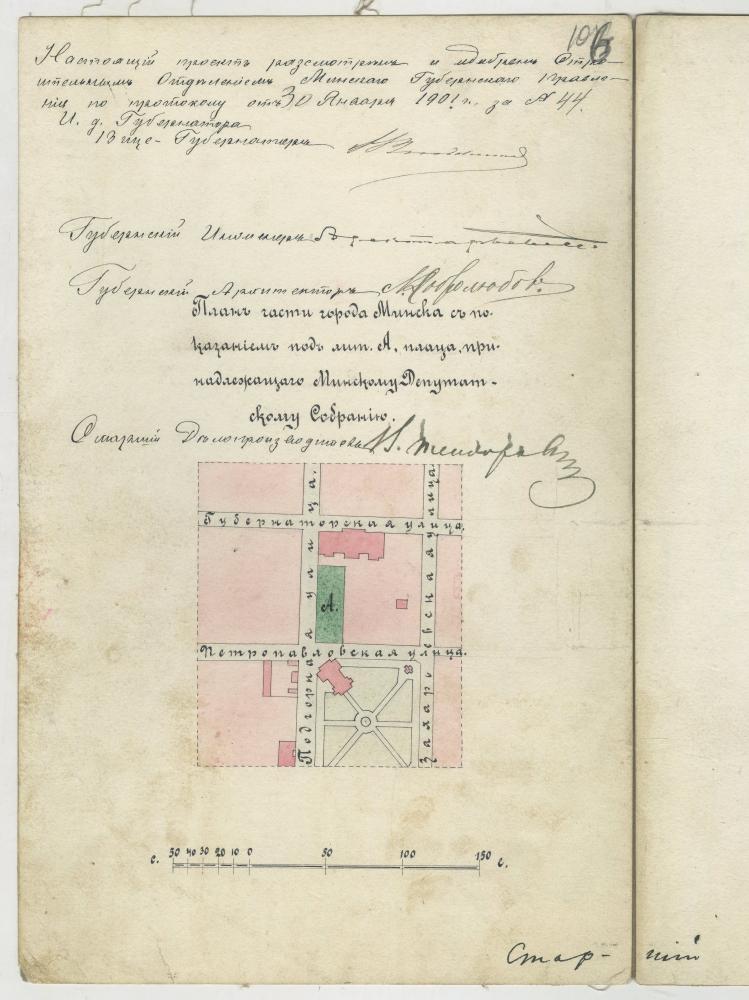 106
Настоящій проектъ разсмотренъ и одобренъ Строи-
тельнымъ Отдѣленіемъ Минскаго Губернскаго Правле-
нія по протоколу отъ 30 Января 1901 г. за № 44.
И. д. Губернатора
Вице-Губернаторъ
Губернскій Инженеръ
Губернскій Архитекторъ
Планъ части города Минска съ по-
казаніемъ подъ лит. А, плаца, при-
надлежащаго Минскому Депутат-
скому Собранію.
Старшій Дѣлопроизводитель
Губернаторская улица.
Подгорная улица.
Захарьевская улица
А.
Петропавловская улица.
с. 50 40 30 20 10 0 50 100 150 с.
Стар- шій